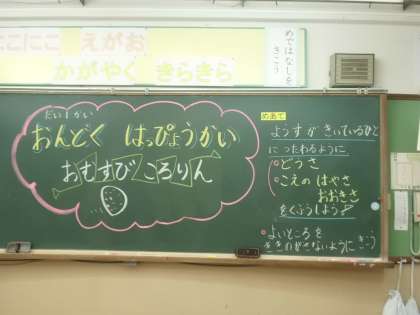 にこにこ えがお
かがやく きらきら
めではなしを
きこう
だい1かい
おんどく はっぴょうかい
おむすび ころりん
めあて
ようすが きいているひと
に つたわるように
どうさ
こえの はやさ
おおきさ
をくふうしよう
よいところを
ききのがさないように きこう